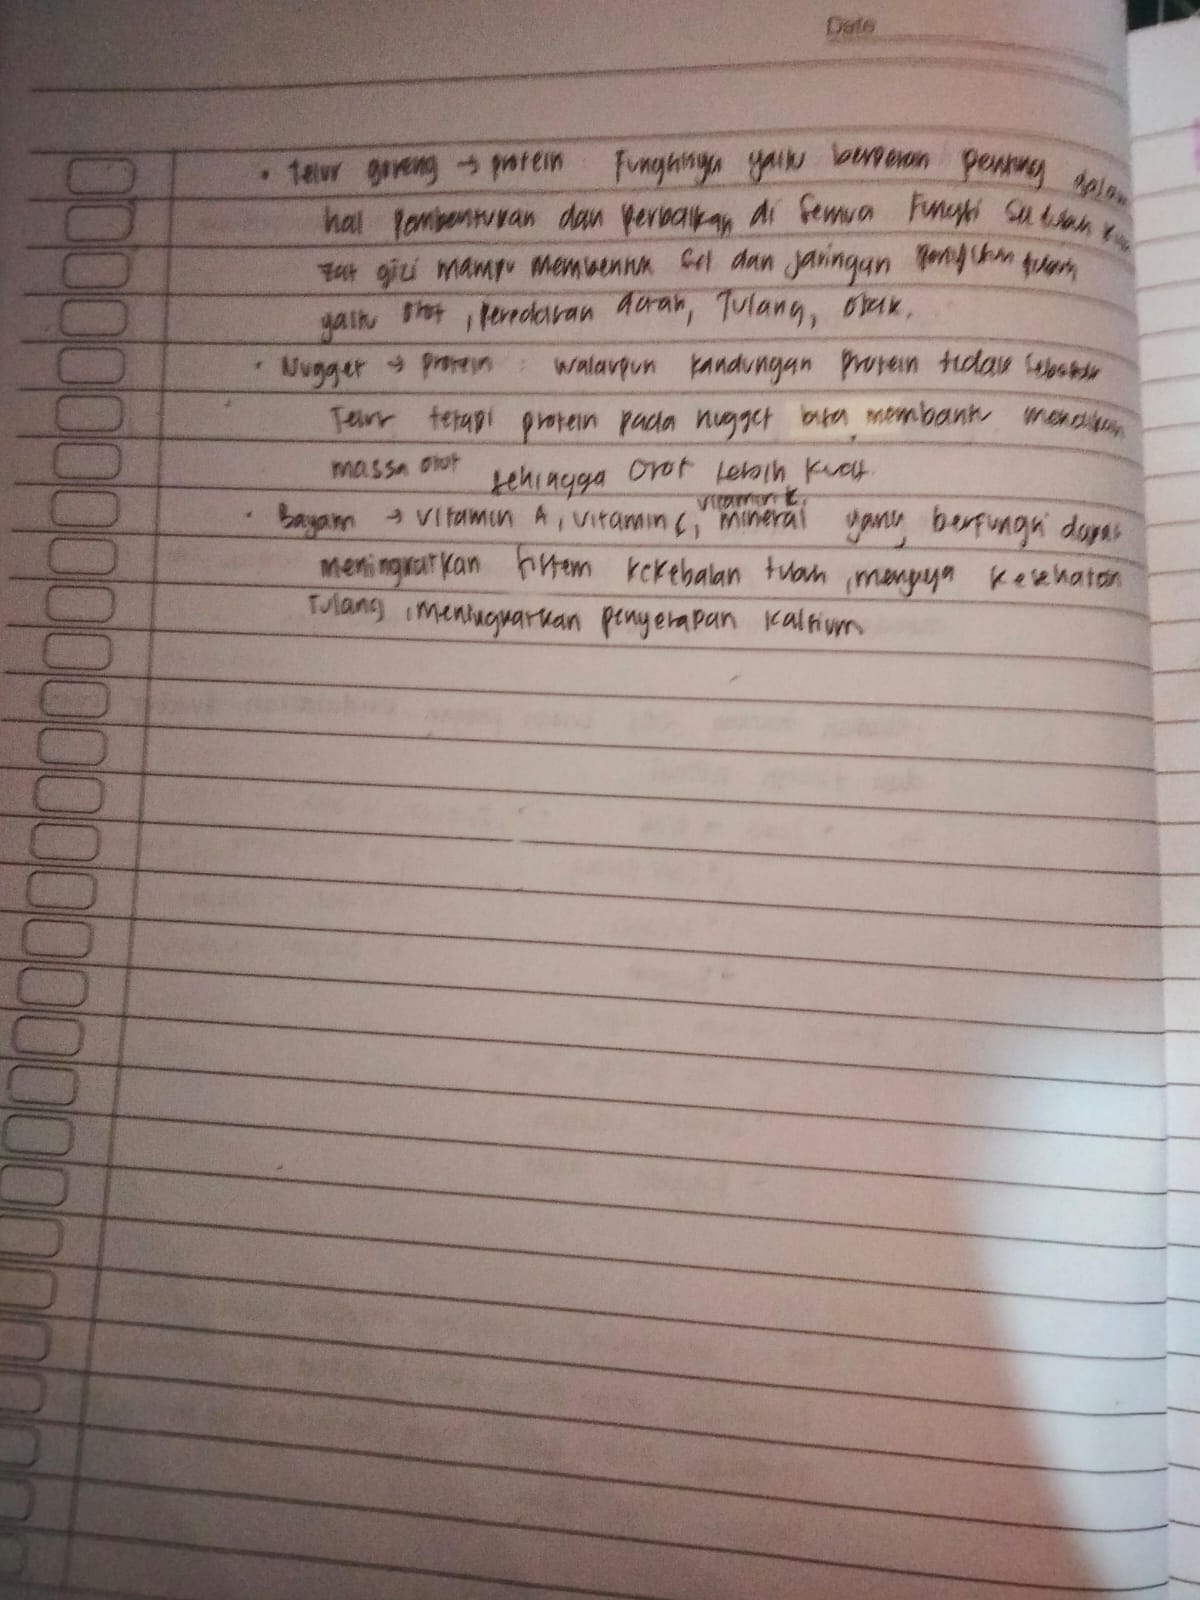 Date
• Telur goreng → protein Fungsinya yaitu berperan penting dalam
hal pembentukan dan perbaikan di semua fungsi
zat gizi mampu membentuk sel dan jaringan tubuh
yaitu otot, peredaran darah, Tulang, otak.
• Nugget → protein : walaupun kandungan protein tidak
Telur tetapi protein pada nugget bisa membantu
massa otot sehingga otot lebih kuat.
vitamin K,
• Bayam → vitamin A, vitamin C, mineral yang berfungsi dapat
meningkatkan sistem kekebalan tubuh, menjaga kesehatan
Tulang, meningkatkan penyerapan kalsium